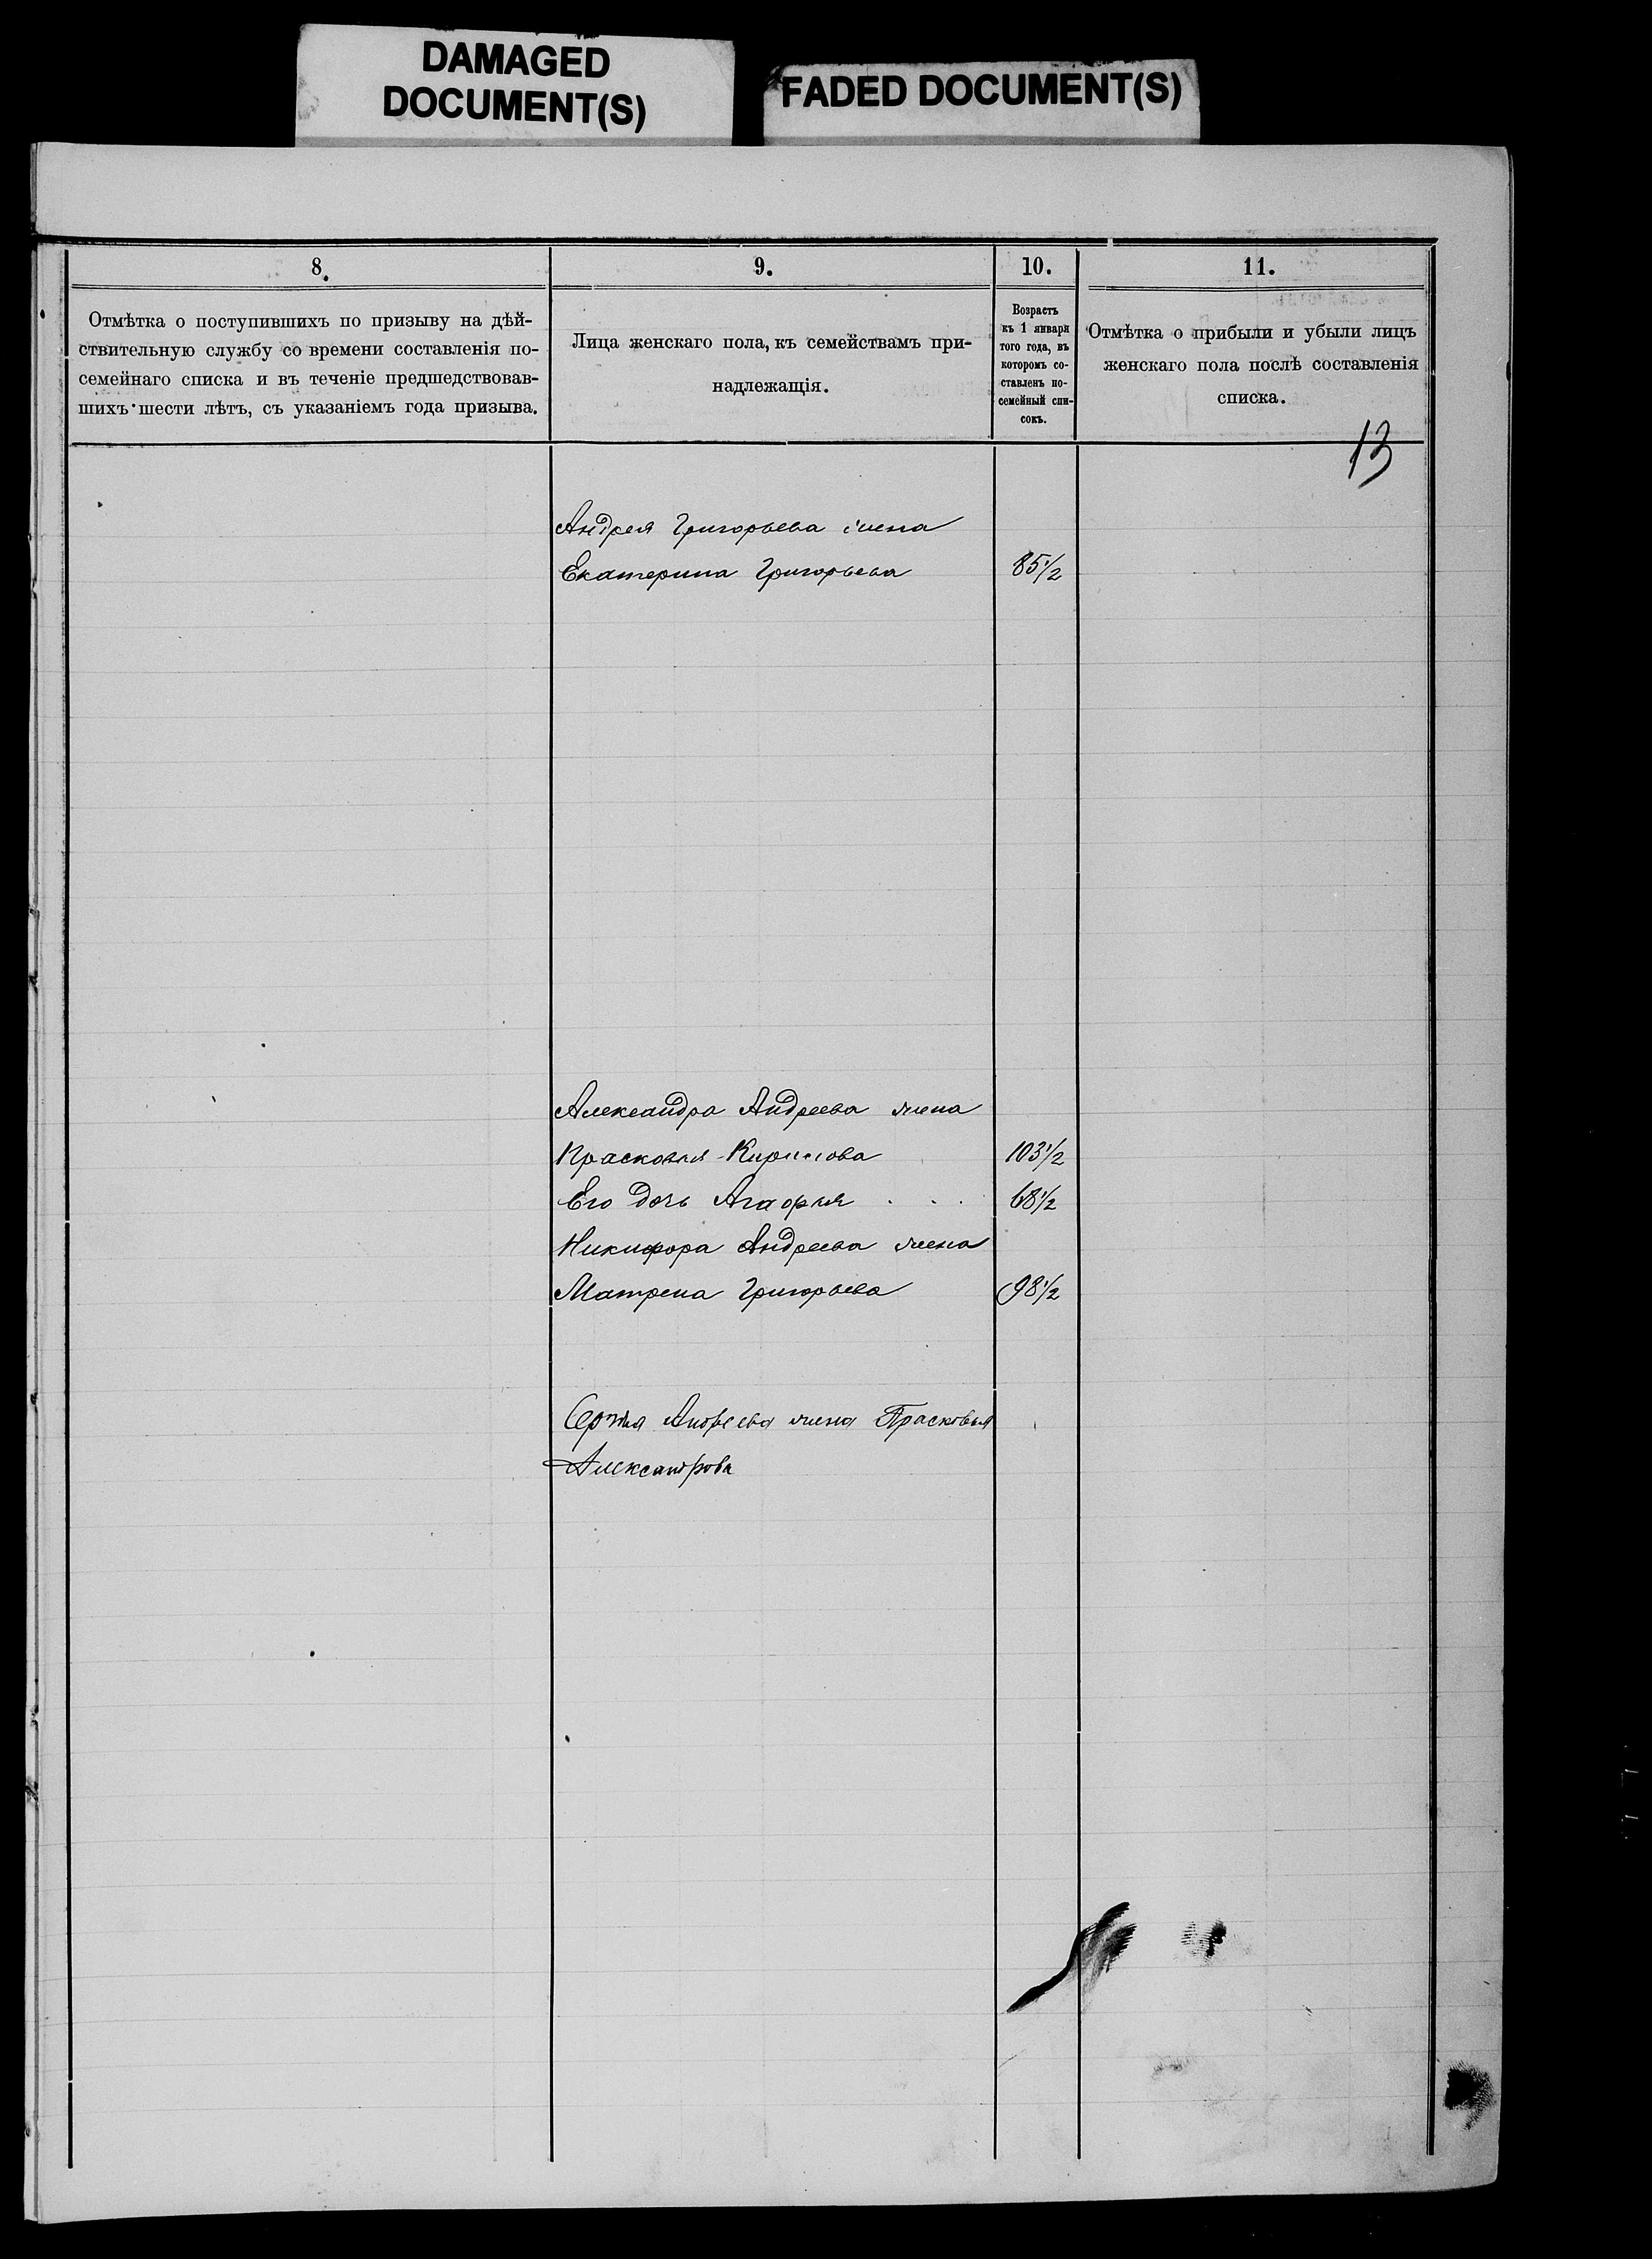 DAMAGED
DOCUMENT(S)
FADED DOCUMENT(S)
8.
Отмѣтка о поступившихъ по призыву на дѣй-
ствительную службу со времени составленія по-
семейнаго списка и въ теченіе предшедствовав-
шихъ шести лѣтъ, съ указаніемъ года призыва.
9.
Лица женскаго пола, къ семействамъ при-
надлежащія.
10.
Возрастъ
къ 1 января
того года, въ
которомъ со-
ставленъ по-
семейный спи-
сокъ.
11.
Отмѣтка о прибыли и убыли лицъ
женскаго пола послѣ составленія
списка.
13
Андрея Григорьева жена
Екатерина Григорьева 85½
Александра Андреева жена
Прасковья Кирилова 103½
Его дочь Агафья . . . 68½
Никифора Андреева жена
Матрена Григорьева 98½
Сергѣя Андреева жена Прасковья
Александрова